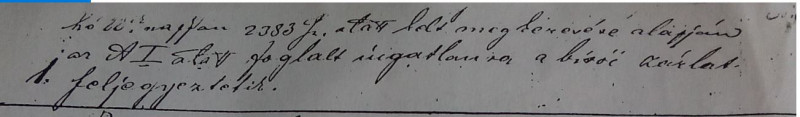 hó 22. napján 2383 sz. alatt kelt megkeresése alapján
az A I alatt foglalt ingatlanra a birói zárlat
1. feljegyeztetik.